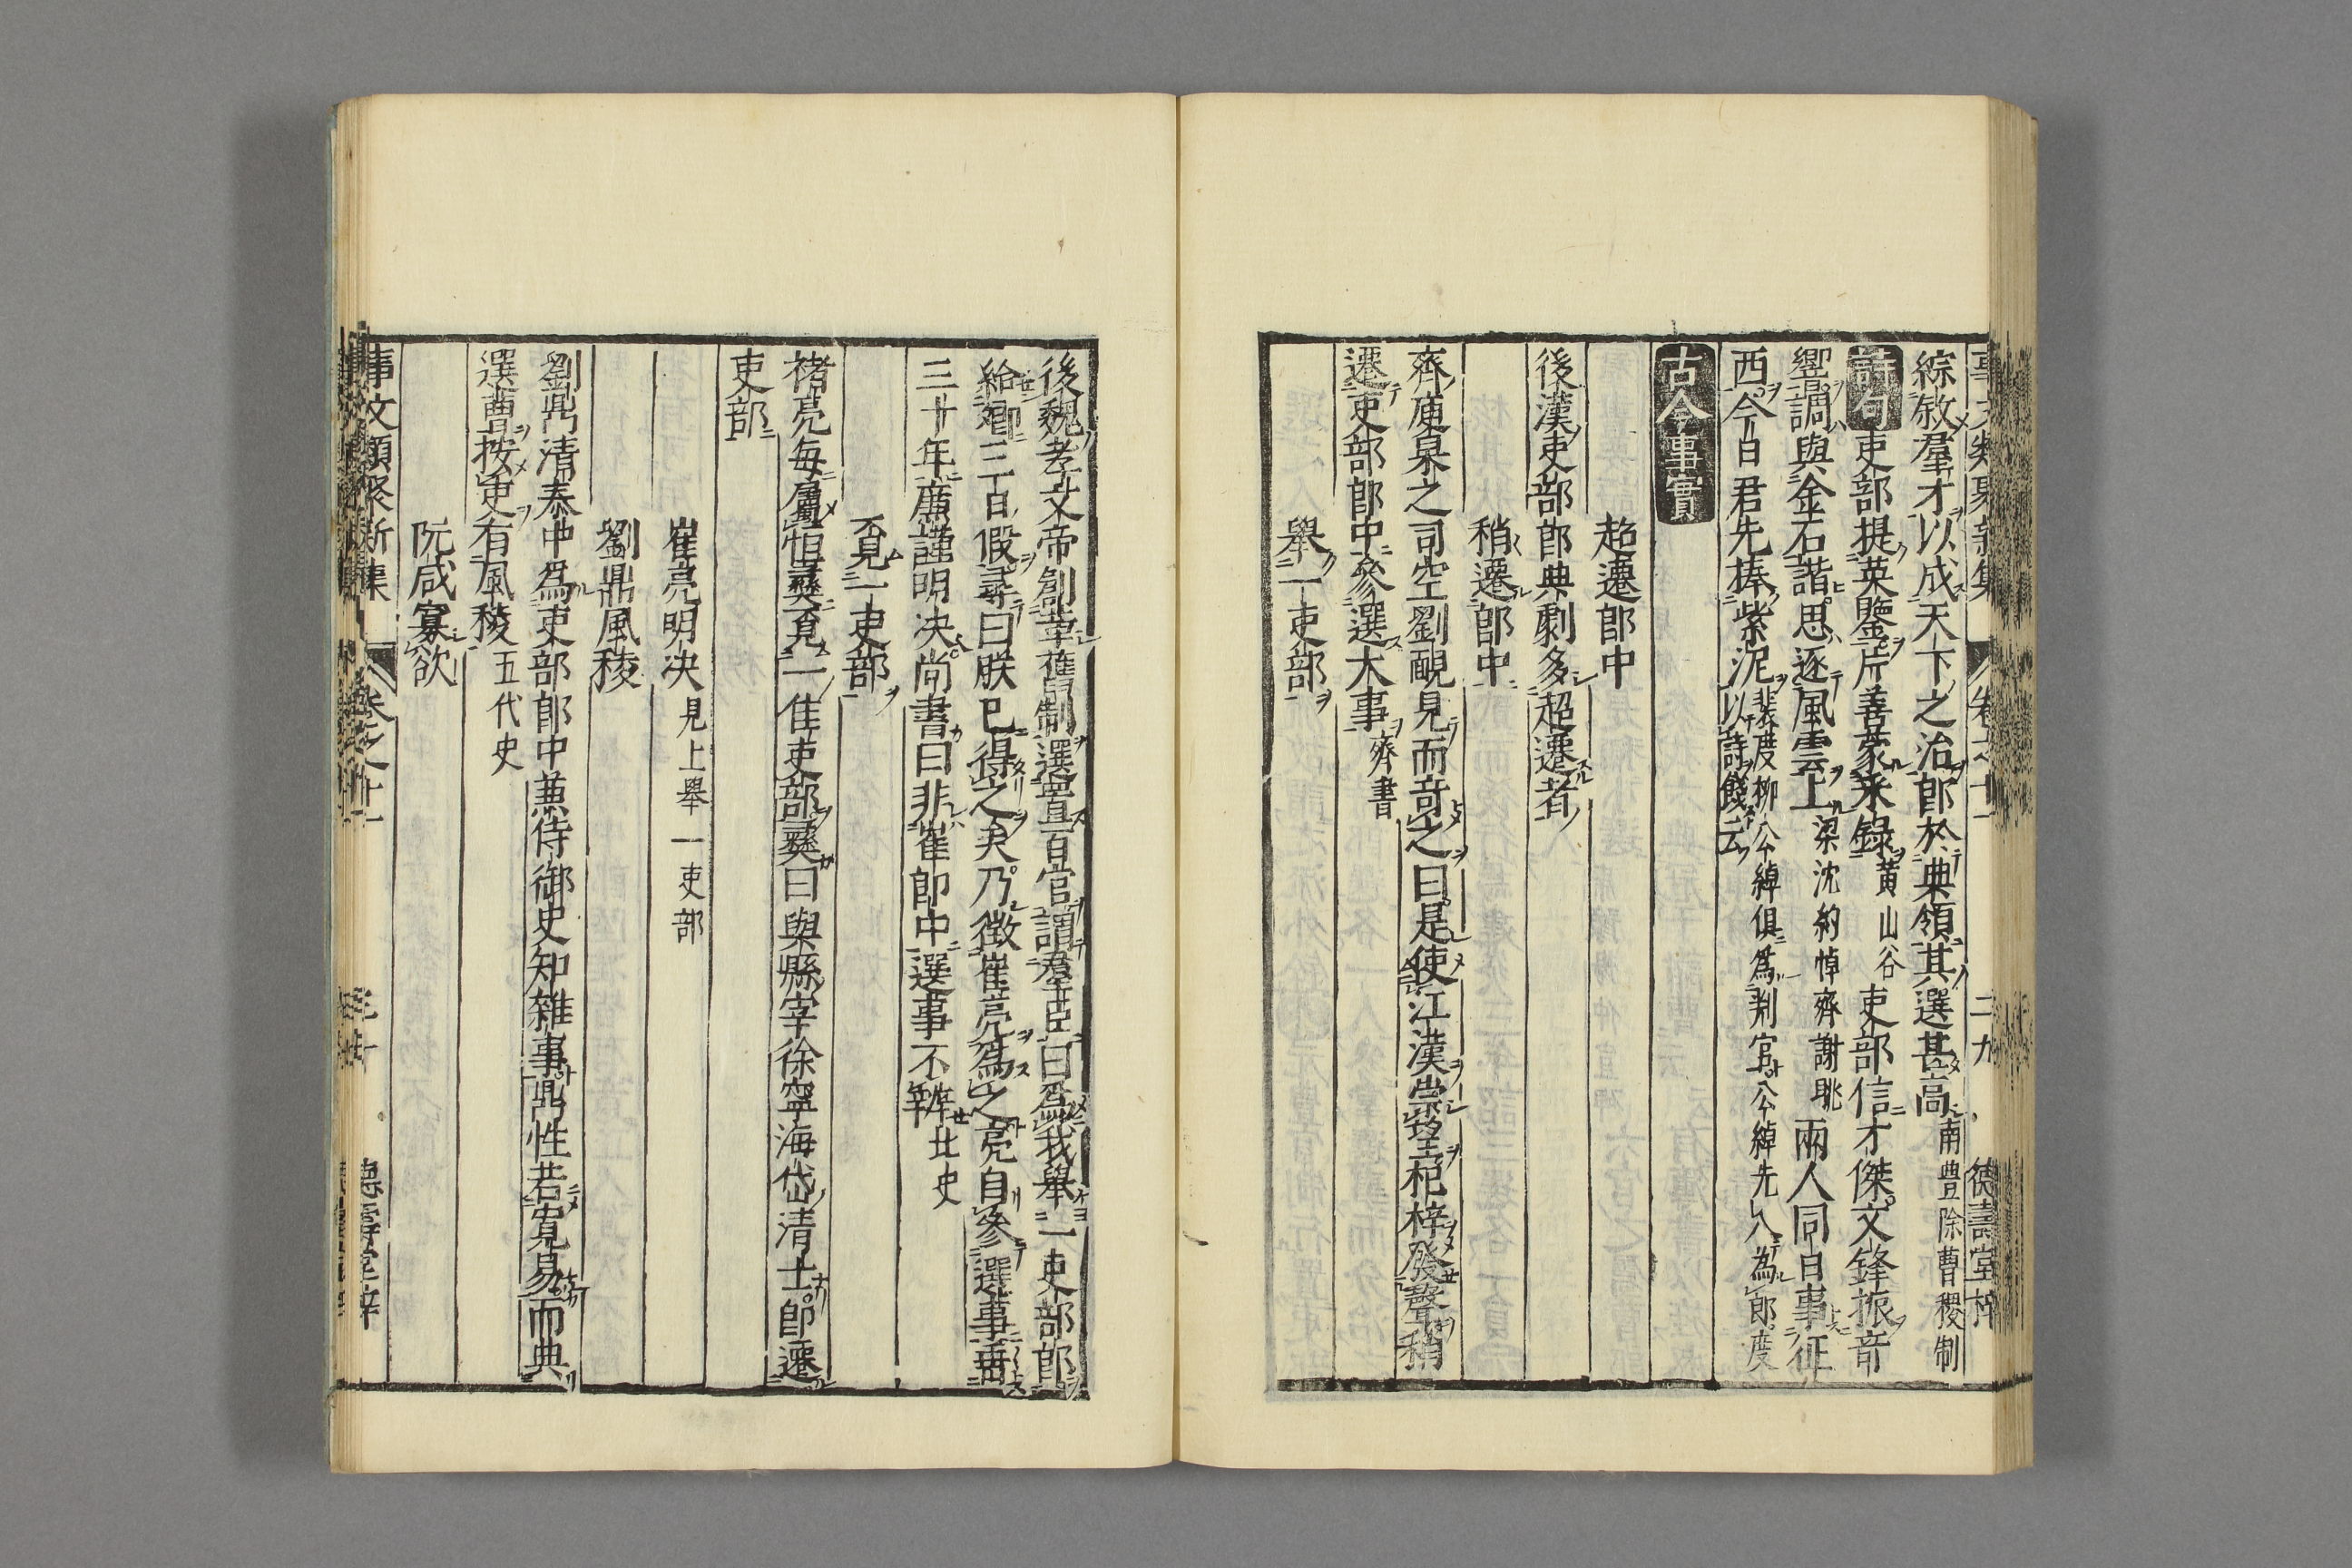 事文類聚新集 卷之十一 二九 德壽堂梓
綜敘羣才以成天下之治郎於典領其選甚高南豊除曹稷制
詩句 吏部提英鑒片善蒙采錄黃山谷 吏部信才傑文鋒振音
響調與金石諧思逐風雲上梁沈約悼齊謝眺 兩人同日事征
西今日君先捧紫泥裴度柳公綽俱爲判官公綽先入為郎度
以詩餞云
古今事實
超遷郎中
後漢吏部郎典劇多超遷者
稍遷郎中
齊庾杲之司空劉勔見而竒之曰是使江漢崇望杞梓發聲稍
遷吏部郎中參選大事齊書
舉一吏部
後魏孝文帝創革舊制選置百官謂羣臣曰爲我舉一吏部郎
給卿三日假尋曰朕已得之矣乃徵崔亮爲之亮自參選事垂
三十年廉謹明决尚書曰非崔郎中選事不辦北史
覓一吏部
褚亮每屬恒彞覓一佳吏部彞曰與縣宰徐寧海岱清士郎遷
吏部
崔亮明决見上舉一吏部
劉鼎風稜
劉鼎清泰中為吏部郎中兼侍御史知雜事鼎性若寬易而典
選曹按吏有風稜五代史
阮咸寡欲
事文類聚新集 卷之十一 德壽堂梓